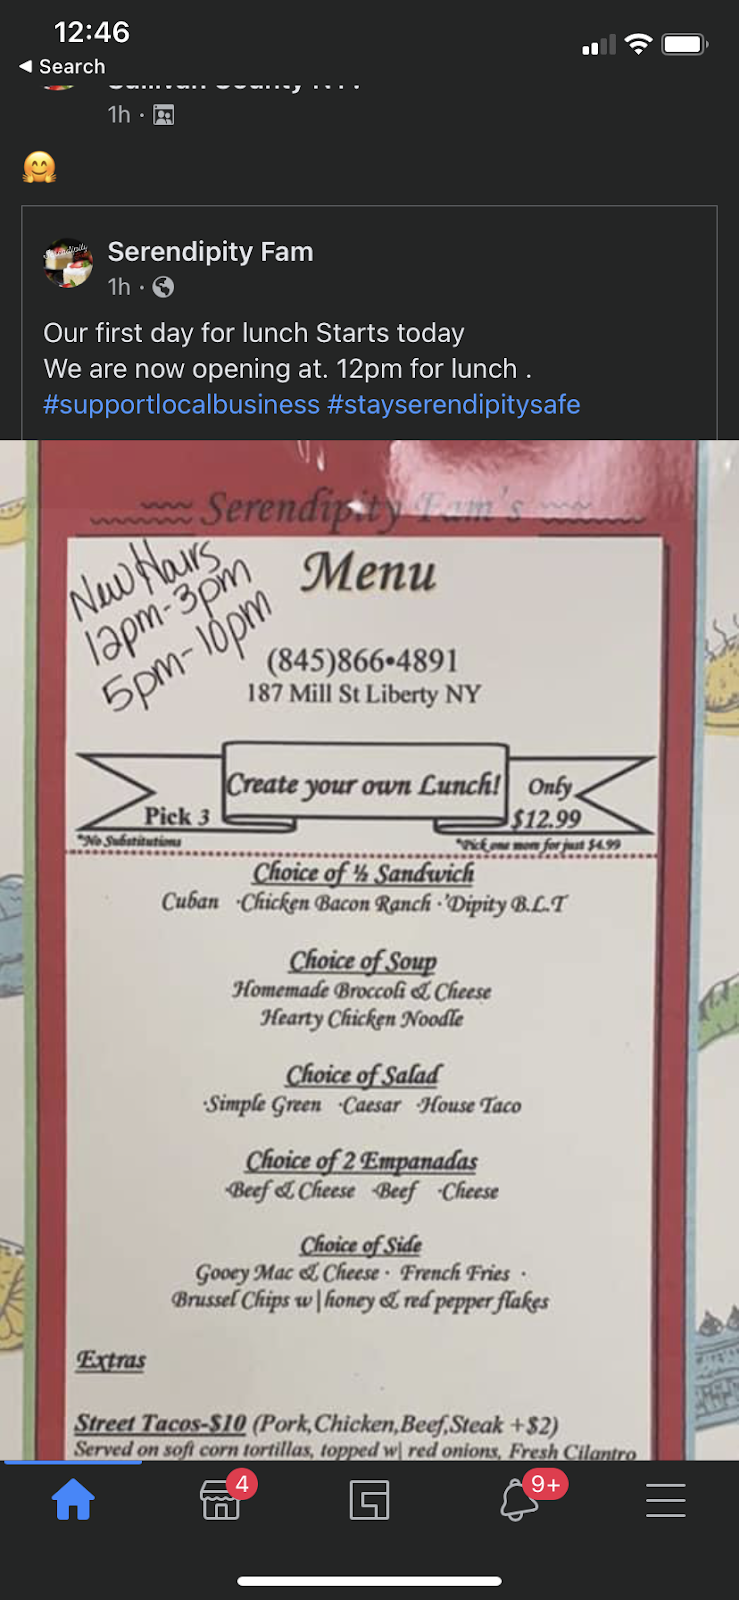 12:46
◀ Search
Sullivan County NY.
1h ·
Serendipity Fam
1h ·
Our first day for lunch Starts today
We are now opening at. 12pm for lunch .
#supportlocalbusiness #stayserendipitysafe
Serendipity Fam's
Menu
New Hours
12pm-3pm
5pm-10pm
(845)866•4891
187 Mill St Liberty NY
Create your own Lunch!
Pick 3
Only
$12.99
*No Substitutions
*Pick one more for just $4.99
Choice of ½ Sandwich
Cuban ·Chicken Bacon Ranch ·'Dipity B.L.T
Choice of Soup
Homemade Broccoli & Cheese
Hearty Chicken Noodle
Choice of Salad
·Simple Green ·Caesar ·House Taco
Choice of 2 Empanadas
·Beef & Cheese ·Beef ·Cheese
Choice of Side
Gooey Mac & Cheese · French Fries ·
Brussel Chips w|honey & red pepper flakes
Extras
Street Tacos-$10 (Pork,Chicken,Beef,Steak +$2)
Served on soft corn tortillas, topped w| red onions, Fresh Cilantro
4
9+